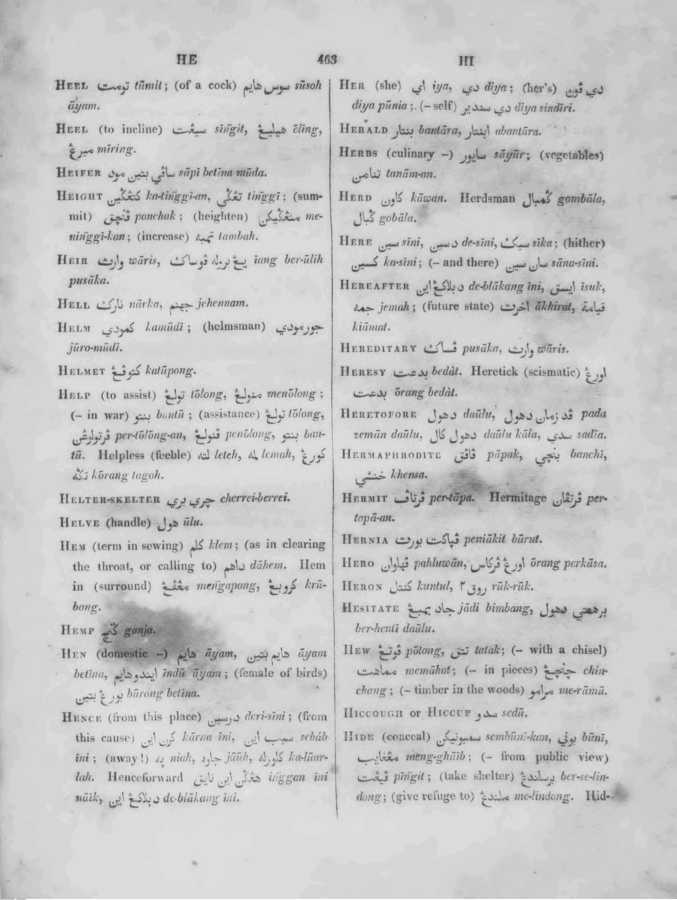 HE 463 HI
HEEL تومت tūmit; (of a cock) سوس هايم sūsoh
āyam.
HEEL (to incline) سيڠت sīngit, هيليڠ ēling,
ميرڠ mīring.
HEIFER ساڤي بتين مود sāpi betīna mūda.
HEIGHT كتڠݢين ka-tinggī-an, تڠݢي tinggī; (sum-
mit) ڤنچق ponchak; (heighten) منڠݢيكن me-
ninggī-kan; (increase) تمبه tambah.
HEIR وارث wāris, يڠ بريله ڤوساك iang ber-ūlih
pusāka.
HELL نارك nārka, جهنم jehennam.
HELM كمودي kamūdi; (helmsman) جورمودي
jūro-mūdi.
HELMET كتوڤڠ katūpong.
HELP (to assist) تولڠ tōlong, منولڠ menūlong;
(– in war) بنتو bantū; (assistance) تولڠ tōlong,
ڤرتولوڠن per-tōlōng-an, ڤنولڠ penūlong, بنتو ban-
tū. Helpless (feeble) لته leteh, لمه lemah, كورڠ
تاݢه kōrang tagoh.
HELTER-SKELTER چري بري cherrei-berrei.
HELVE (handle) هول ūlu.
HEM (term in sewing) كلم klem; (as in clearing
the throat, or calling to) داهم dāhem. Hem
in (surround) مڠڤڠ mengapong, كروبڠ krū-
bong.
HEMP ݢنج ganja.
HEN (domestic –) هايم āyam, هايم بتين āyam
betīna, ايندوهايم indū āyam; (female of birds)
بورڠ بتين būrong betīna.
HENCE (from this place) درسين deri-sīni; (from
this cause) كرن اين kārna īni, سبب اين sebāb
īni; (away!) يه niah, جاوه jāūh, كلورله ka-lūar-
lah. Henceforward هڠݢن اين نايق inggan īni
nāik, دبلاكڠ اين de-blākang īni.
HER (she) اي iya, دي diya; (her's) دي ڤون
diya pūnia; (– self) دي سنديري diya sindīri.
HERALD بنتار bantāra, ابنتار abantāra.
HERBS (culinary –) سايور sāyūr; (vegetables)
تنامن tanām-an.
HERD كاون kāwan. Herdsman ݢمبال gombāla,
ݢبال gobāla.
HERE سين sīni, دسين de-sīni, سيك sīka; (hither)
كسين ka-sīni; (– and there) سان سين sāna-sīni.
HEREAFTER دبلاكڠ اين de-blākang īni, ايسق isuk,
جمه jemah; (future state) اخرت ākhirat, قيامة
kiāmat.
HEREDITARY ڤساك pusāka, وارث wāris.
HERESY بدعت bedāt. Heretick (scismatic) اورڠ
بدعت ōrang bedāt.
HERETOFORE دهول daūlu, ڤد زمان دهول pada
zemān daūlu, دهول كال daūlu kāla, سدي sadīa.
HERMAPHRODITE ڤاڤق pāpak, بنچي banchi,
خنثي khensa.
HERMIT ڤرتاڤ per-tāpa. Hermitage ڤرتڤان per-
tapā-an.
HERNIA ڤياكت بورت peniākit būrut.
HERO ڤهلوان pahluwān, اورڠ ڤركاس ōrang perkāsa.
HERON كنتل kuntul, روق٢ rūk-rūk.
HESITATE جاد بمبڠ jādi bimbang, برهنتي دهول
ber-henti daūlu.
HEW ڤوتڠ pōtong, تتق tatak; (– with a chisel)
مماهت memāhat; (– in pieces) چنچڠ chin-
chang; (– timber in the woods) مرامو me-rāmū.
HICCOUGH or HICCUP سدو sedū.
HIDE (conceal) سمبونيكن sembūnī-kan, بوني būnī,
مڠغايب meng-ghāib; (– from public view)
ڤيڠت pīngit; (take shelter) برسلندڠ ber-se-lin-
dong; (give refuge to) ملندڠ me-lindong. Hid-